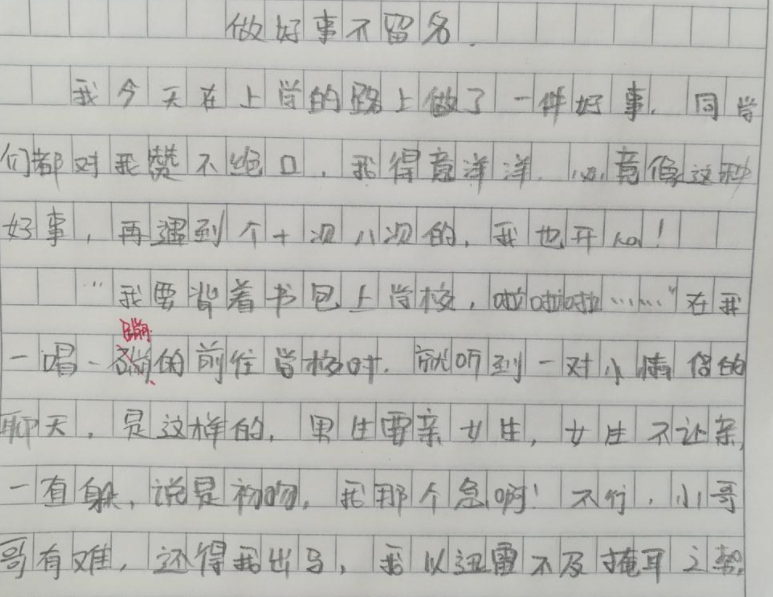 做好事不留名.
我今天在上学的路上做了一件好事,同学
们都对我赞不绝口,我得意洋洋.心竟像这种
好事,再遇到个十次八次的,我也开心!
"我要背着书包上学校,啦啦啦……"在我
蹦
一唱一的前往学校时.就听到一对小情侣的
聊天,是这样的,男生要亲女生,女生不让亲,
一直躲,说是初吻,我那个急啊!不行,小哥
哥有难,还得我出马,我以迅雷不及掩耳之势,